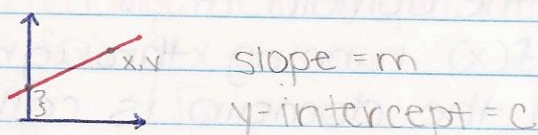 x,y
slope = m
y-intercept = c